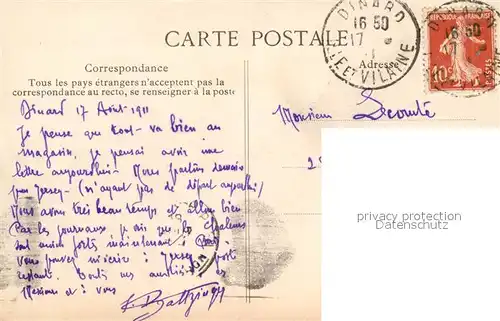 DINARD
16 50
17
ILLE ET VILAINE
CARTE POSTALE
Correspondance
Adresse
Tous les pays étrangers n'acceptent pas la
correspondance au recto, se renseigner à la poste
Dinard 17 Août 1911
Je pense que tout va bien au
magasin, je pensais avoir une
lettre aujourd'hui - Nous partons demain
pour Jersey - (n'ayant pas de départ aujourd'hui)
Nous avons très beau temps et allons bien
Par les journaux, je vois que les chaleurs
sont moins fortes maintenant à
Vous pouvez m'écrire à Jersey poste
restante. nos amitiés
Maxime et à vous
Monsieur Lecomte
2
RÉPUBLIQUE FRANÇAISE
10c
POSTES
16 50
17
protected by copyright
Daten geschützt